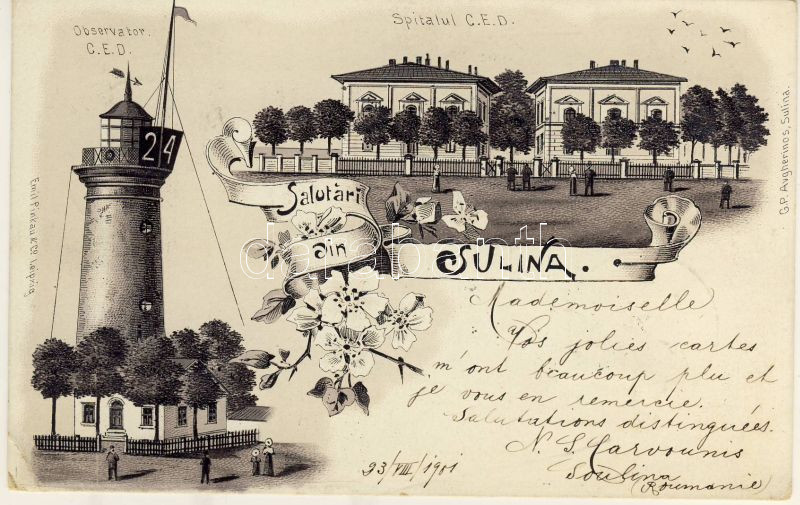 Observator.
C.E.D.
Spitalul C.E.D.
24
Salutări
din
SULINA.
G.P. Avgherinos, Sulina.
Emil Pinkau & Co. Leipzig
Mademoiselle
Vos jolies cartes
m'ont beaucoup plu et
je vous en remercie.
Salutations distinguées.
N. S. Carvounis
Soulina
(Roumanie)
23/VIII/1901